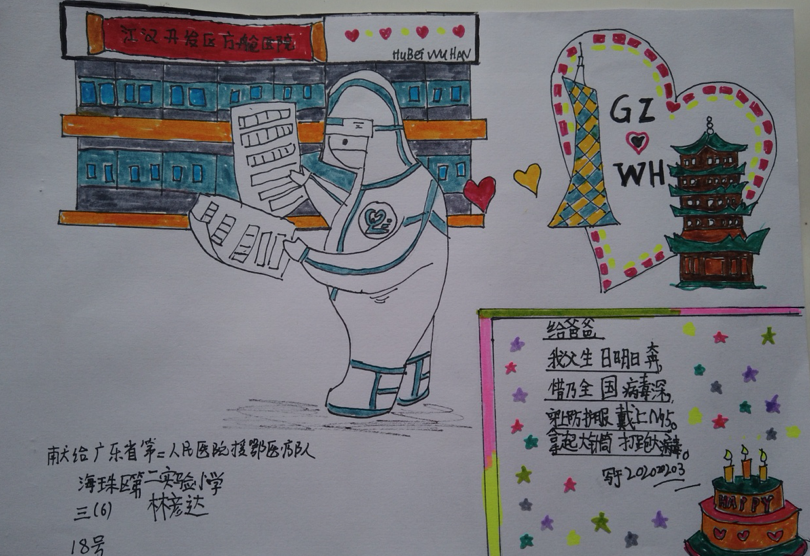 江汉开发区方舱医院
HuBei WUHAN
GZ
WH
给爸爸
我父生日明日奔,
乃全国病毒深,
穿上防护服戴上N95。
拿起大针筒打跑大病毒。
写于20200203
HAPPY
献给广东省第二人民医院援鄂医疗队
海珠区第二实验小学
三(6) 林彦达
18号